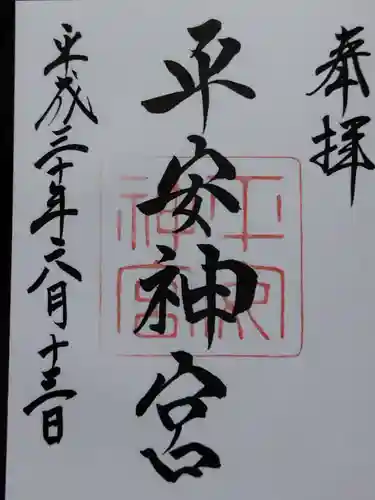 奉拝
平安神宮
平成三十年六月十三日
平安
神宮